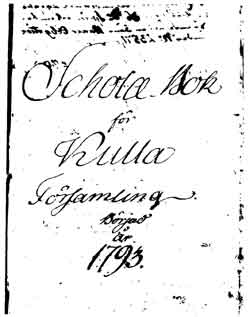 Scholæ Bok
för
Kulla
Församling
Börjad
år
1793.